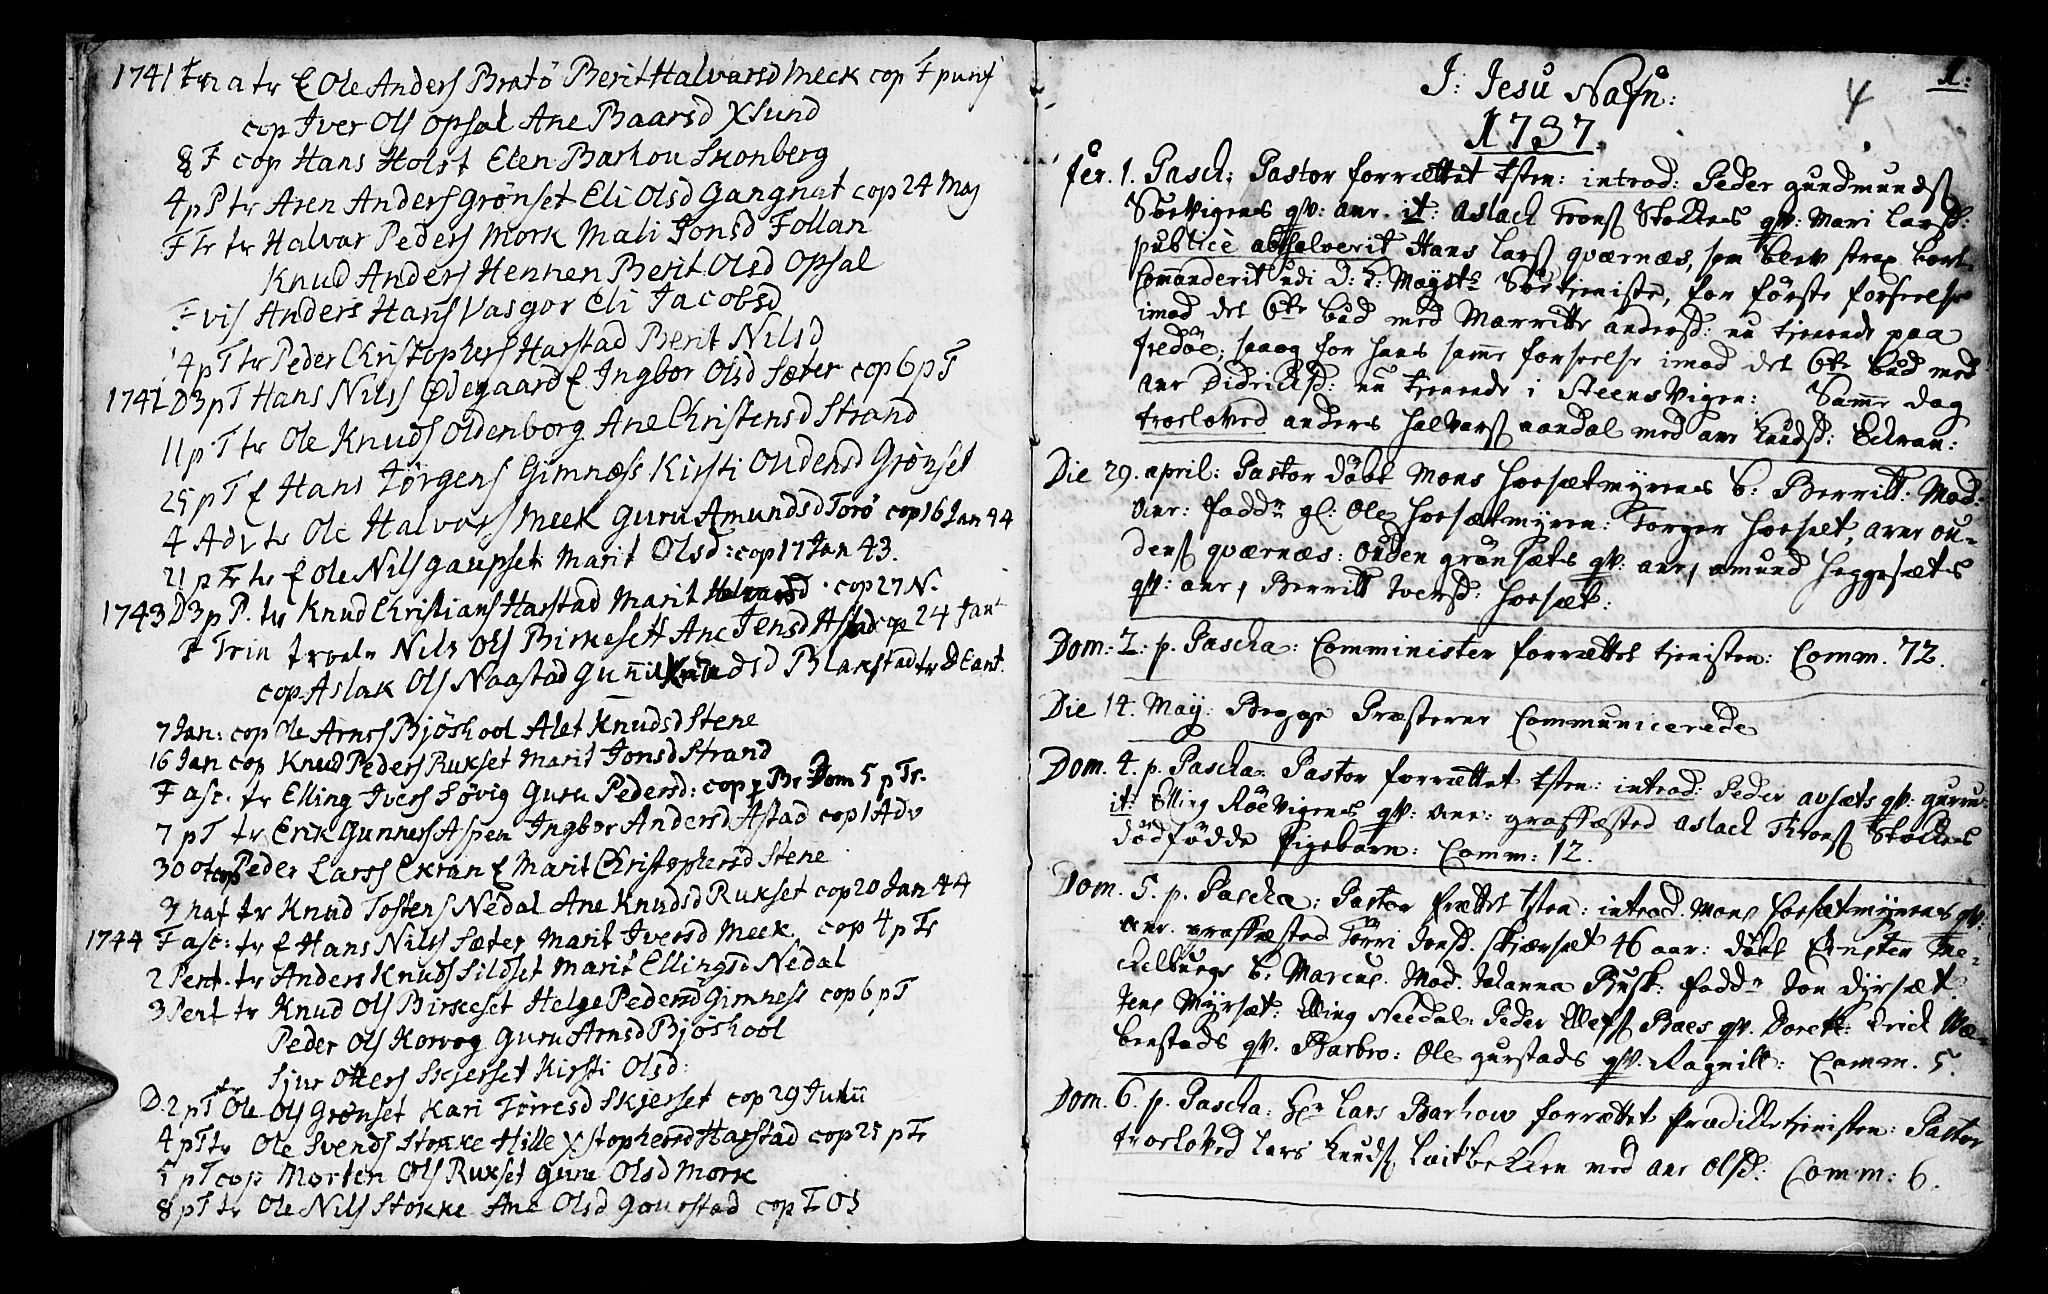 1741 tr E Ole Anders Bratö Berit Halvarsd Meek cop F purif
cop Iver Ols Opsal Ane Baarsd Xsund
8 F cop Hans Holst Elen Barhou Skonberg
4 p P tr Aren Anders Grönset Eli Olsd Gangnat cop 24 Maj
F Tr tr Halvar Peders Mork Mali Jonsd Follan
Knud Anders Hennen Berit Olsd Opsal
F vis Anders Hans Vasgor Eli Jacobsd
4 p T tr Peder Christophers Harstad Berit Nilsd
1742 D3 p T Hans Nilss Ødegaard E Ingbor Olsd Sæter cop 6 p T
11 p T tr Ole Knuds Oldenborg Ane Christensd Strand
25 p T E Hans Jörgens Gimnæss Kirsti Oudensd Grönset
4 Adv tr Ole Halvars Meek Guru Amundsd Torö cop 16 Jan 44
21 p Tr tr E Ole Nils Gaupset Marit Olsd: cop 17 Jan 43.
1743 D3 p P. tr Knud Christians Harstad Marit Halvarsd · cop 27 N.
F Trin trolv Nils Ols Birkeset Ane Jensd Astad cop 24 Jan
cop Aslak Ols Naastad Gunil Knudsd Blakstad tr D Cant.
7 Jan: cop Ole Arnes Bjöshool Alet Knudsd Stene
16 Jan cop Knud Peders Rukset Marit Jonsd Strand
F asc. tr Elling Ivers Sövig Guru Pedersd: cop p Br Dom 5 p Tr.
7 p T tr Erik Gunners Aspen Ingbor Andersd Astad cop 1 Adv
30 Oct cop Peder Larss Ekran E Marit Christophersd Stene
3 nat tr Knud Tostens Nedal Ane Knudsd Rukset cop 20 Jan 44
1744 F asc: tr E Hans Nilss Sæter Marit Iversd Meek cop 4 p Tr
2 Pent. tr Anders Knuds Sildset Marit Ellingsd Nedal
3 Pent tr Knud Ols Birkeset Helge Pedersd Gimness cop 6 p T
Peder Ols Korvog Guru Arnsd Bjöshool
Sjur Otters Skjerset Kirsti Olsd:
D. 2 p T tr Ole Ols Grønset Kari Törresd Skjerset cop 29 Junii
4 p T tr Ole Svends Stokke Hille Xstophersd Harstad cop 25 p Tr
5 p T cop Morten Ols Rukset Guru Olsd Mork
8 p T tr Ole Nils Stokke Ane Olsd Gourstad cop F OS
J: Jesu Nafn: 4 1:
1737.
Fer. 1. Pasch: Pastor forrættet tsten: introd: Peder Gundmunds
Sörvigens qv: anr. it: Aslach Trons Stokkes qv: Mari Larsd:
publicè absolverit Hans Lars Qværnæs, som blev strax bort
Commanderit udi D: K: Mayst Söe tjeniste, for förste forseelse
imod det 6te bud med Marritte Andersd: nu tjenende paa
Fredöe; saaog for hans samme forseelse imod det 6te bud med
anr Didrichsd: nu tjenende i Steensvigen: Samme dag
troeloved Anders Halvars Aandal med anr Knudsd: Eckran:
Die 29. April: Pastor döbt Mons Hoesætmyrens b: Berritt: Mod:
anr: fadd gl: Ole Hoesætmyren: Torger Hoesæt, Arne Ou-
dens Qværnæs: Ouden Grönsæts qv: anr, Amund Heggesæts
qv: anr, Berritt Iversd: Hoesæt:
Dom: 2: p. Pascha: Comminister forrættet tjenisten: Comm. 72.
Die 14. May: Begge Præsterne Communicerede
Dom. 4. p. Pascha: Pastor forrættet tsten: introd: Peder Avsæts qv: Gurru
it: Elling Röevigens qv: anr: graffæsted Aslach Trons Stokkes
dödfödde Pigebarn: Comm: 12.
Dom. 5. p. Pascha: Pastor frættet tsten: introd. Mons Hoesætmyrens qv:
anr. graffæsted Törri Jonsd. Skjærsæt 46 aar: döbt Ernster Me-
chelburgs b: Marcus. Mod. Johanna Rusk: fadd Jon Dyrsæt.
Jens Myrsæt: Elling Needal: Peder Ellefs Baes qv. Dorete: Erich Væ-
benstads qv. Barbro: Ole Gurstads qv. Ragnill: Comm. 5.
Dom. 6. p. Pascha: Hr Lars Barhow forrættet Prædikketjenisten: Pastor
troeloved Lars Knuds Leitbekken med anr Olsd: Comm: 6.